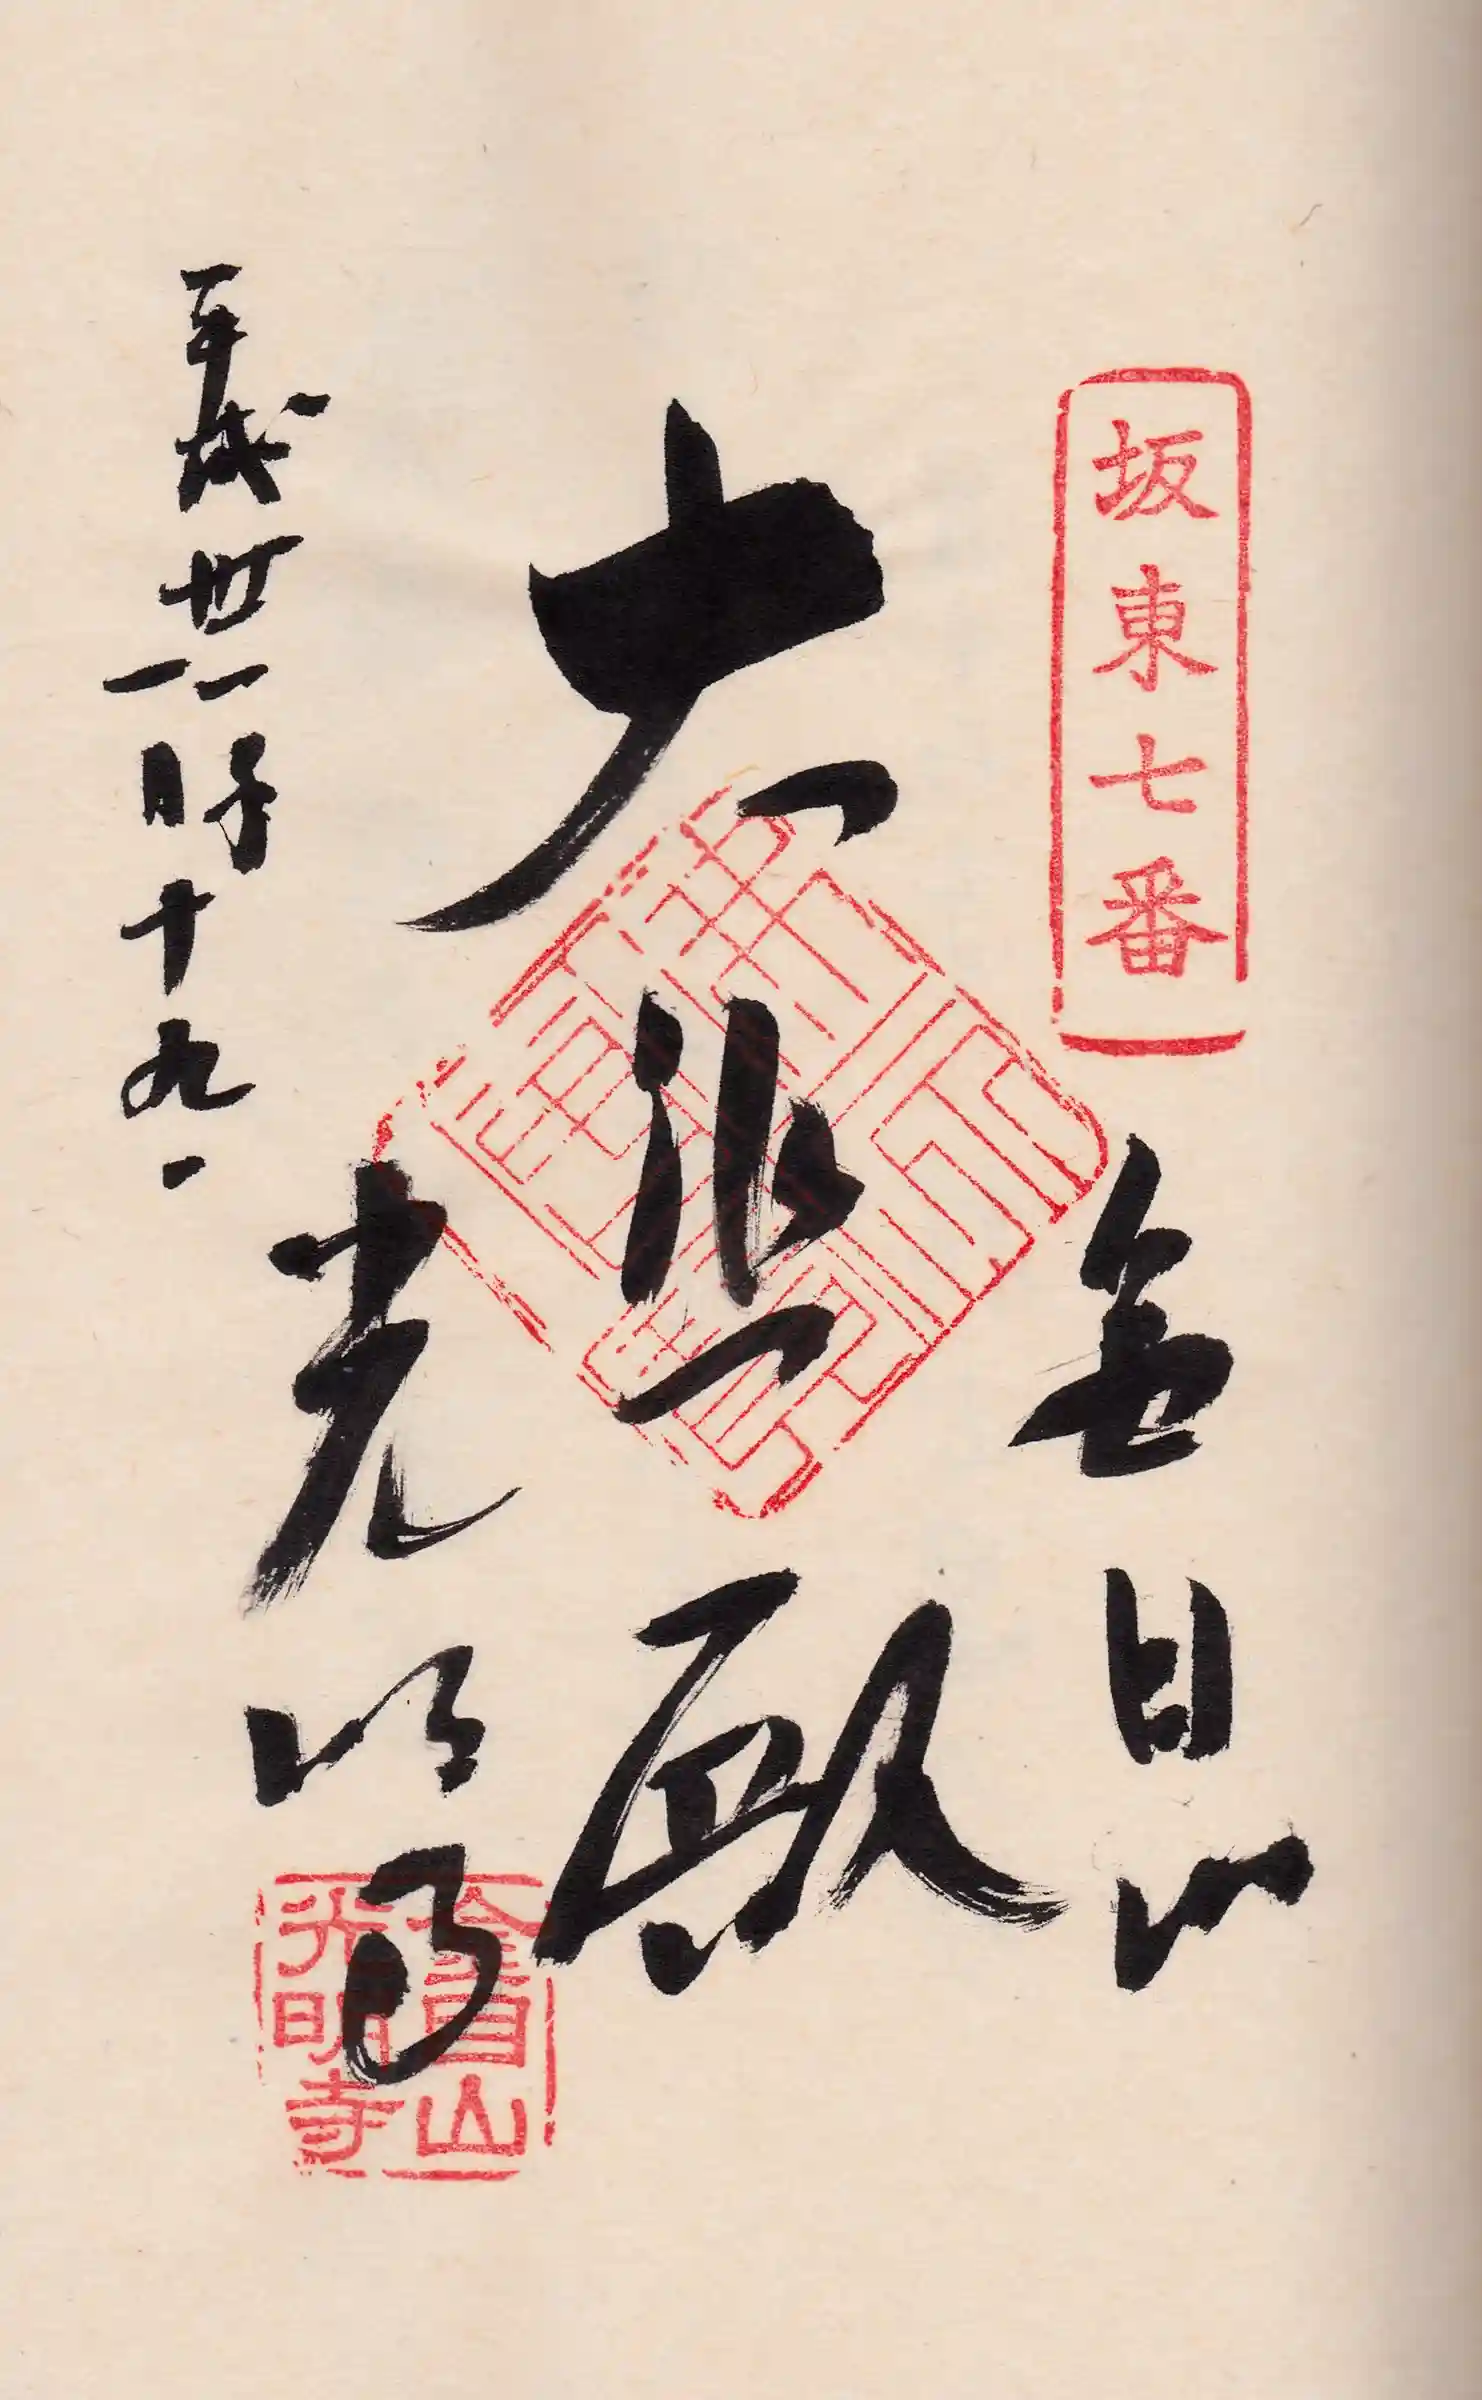 坂東七番
金目山
大悲殿
光明寺
平成卅一年
一月十九日
金目山
光明寺